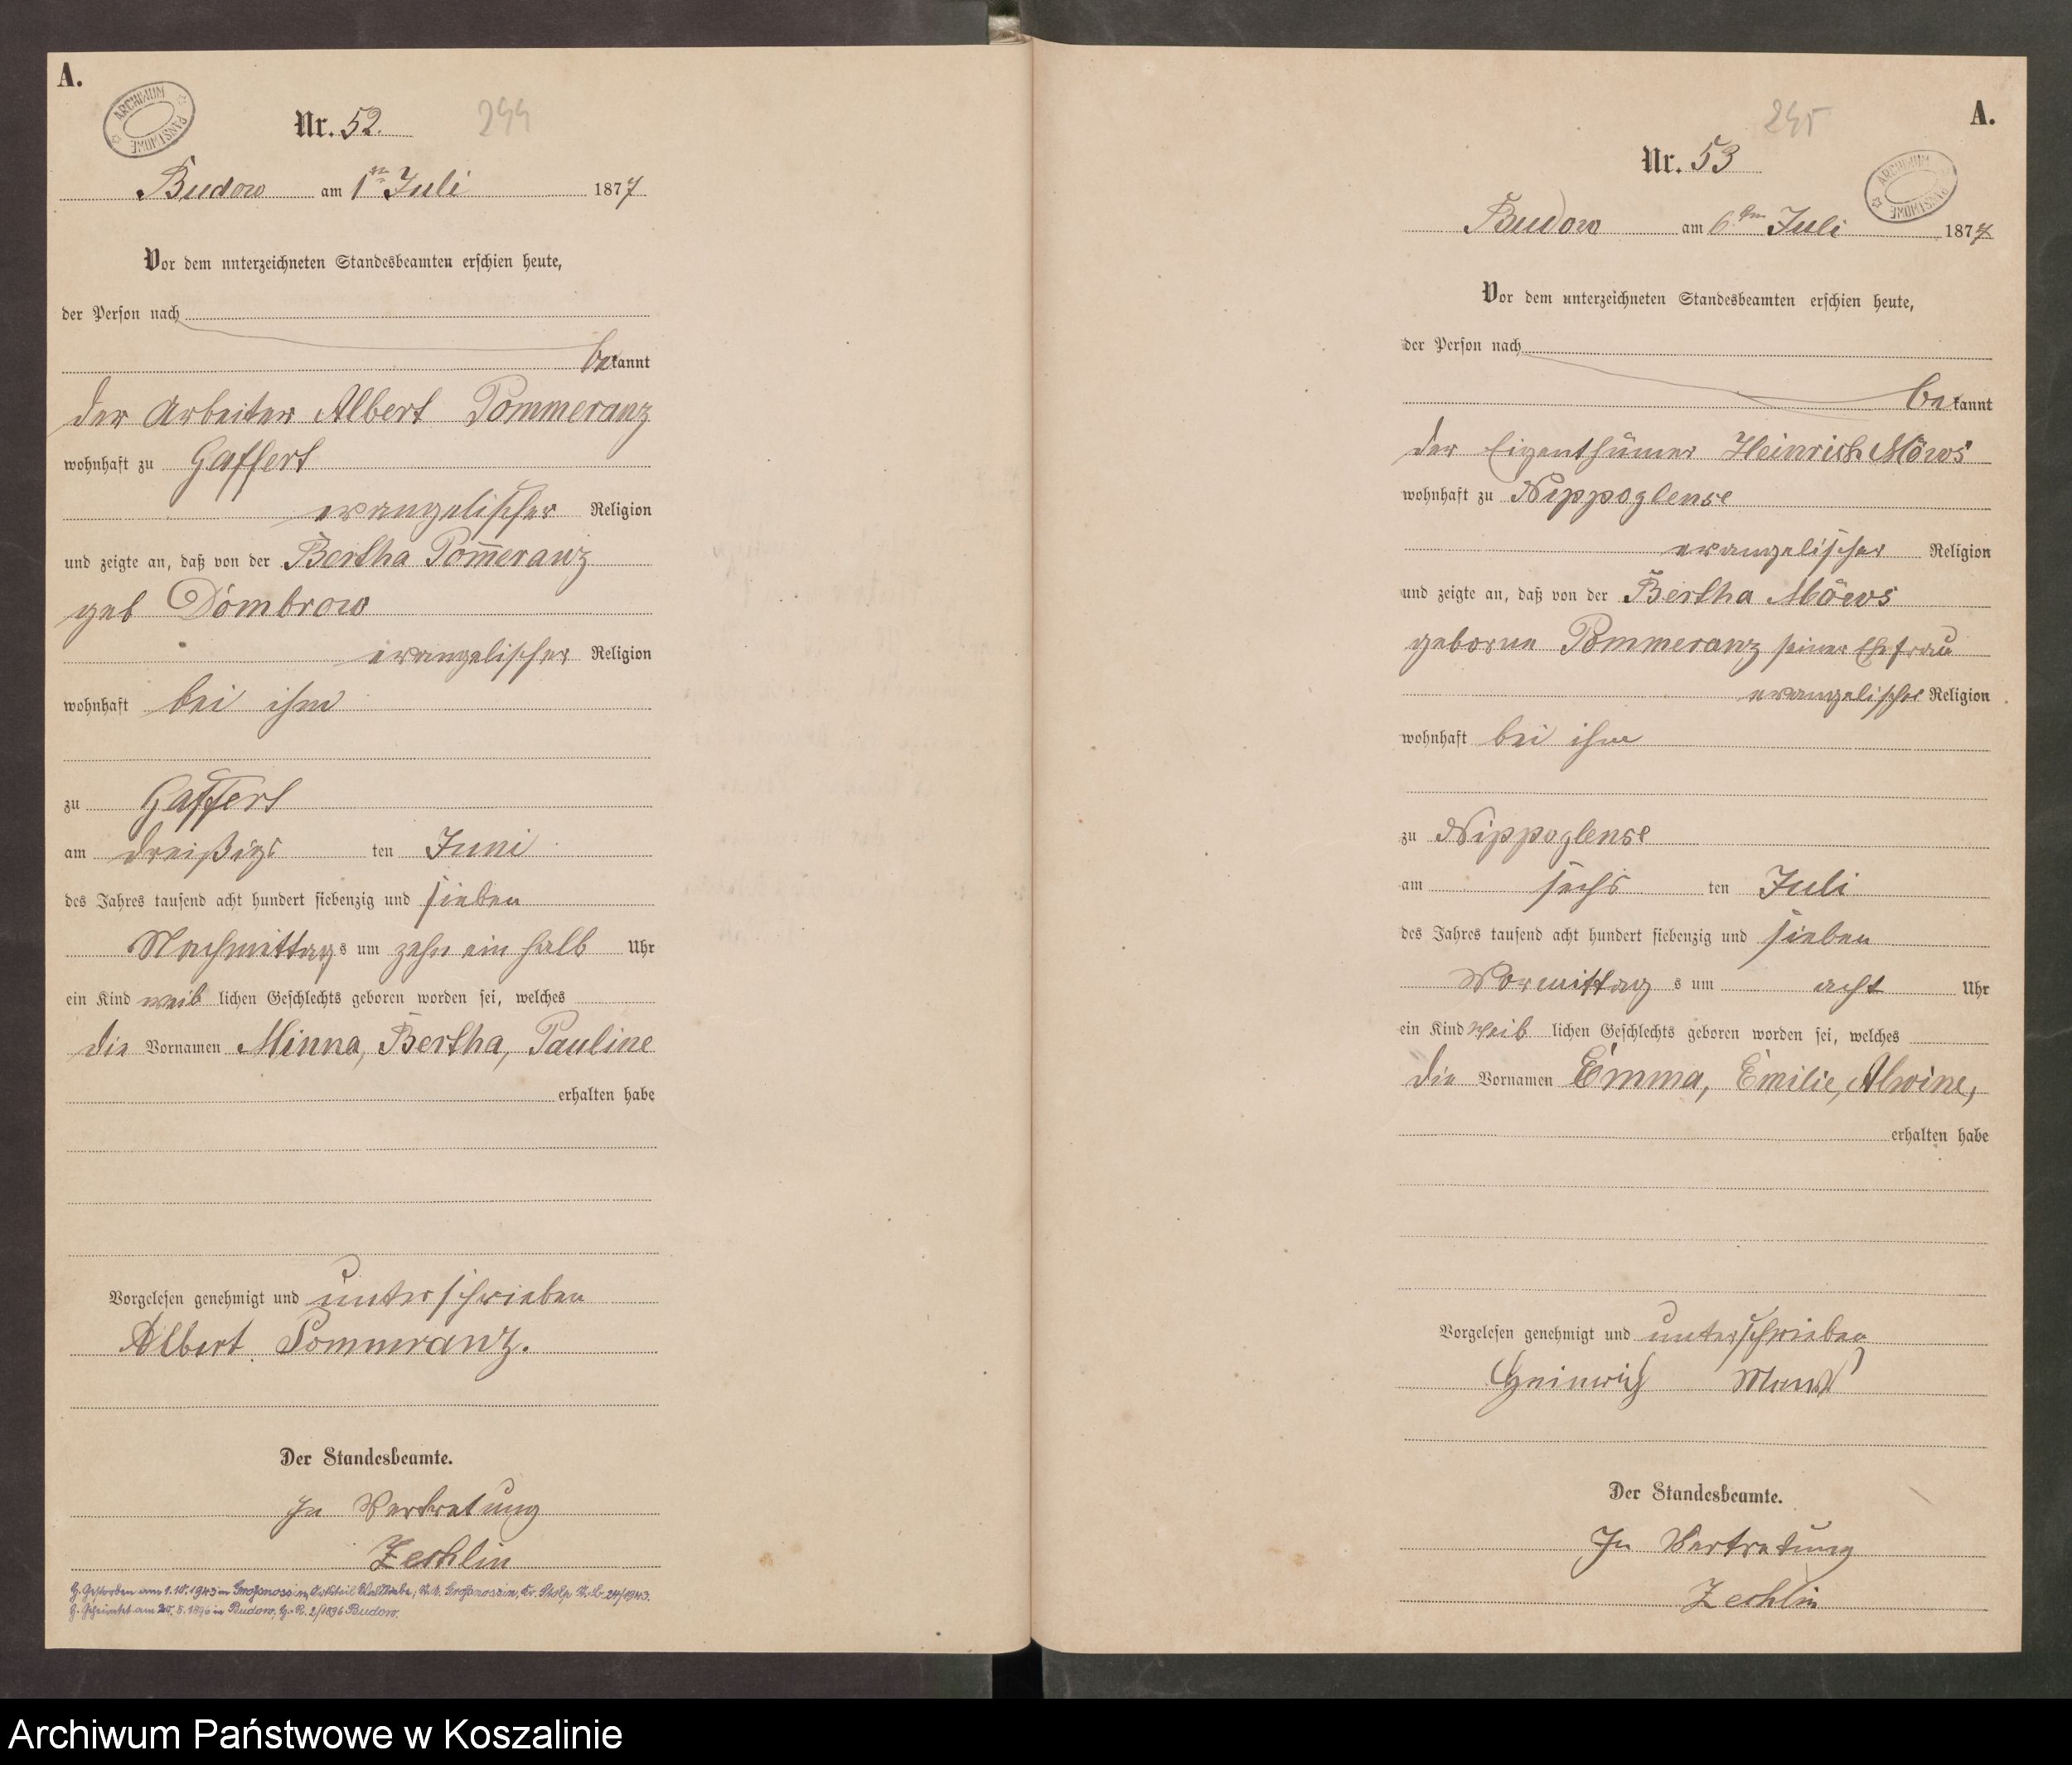 A.
ARCHIWUM PAŃSTWOWE
Nr. 52. 244
Budow am 1ten Juli 1877
Vor dem unterzeichneten Standesbeamten erschien heute,
der Person nach
bekannt
der Arbeiter Albert Pommeranz
wohnhaft zu Gaffert
evangelischer Religion
und zeigte an, daß von der Bertha Pom̄eranz
geb Dombrow
evangelischer Religion
wohnhaft bei ihm
zu Gaffert
am dreißigs ten Juni
des Jahres tausend acht hundert siebenzig und sieben
Nachmittags um zehn ein halb Uhr
ein Kind weiblichen Geschlechts geboren worden sei, welches
die Vornamen Minna, Bertha, Pauline
erhalten habe
Vorgelesen genehmigt und unterschrieben
Albert Pommeranz.
Der Standesbeamte.
In Vertretung
Zechlin
G. Gestorben am 1.10.1943 in Großnossin, St.A. Großnossin, Kr. Stolp Nr. 24/1943.
G. Geheiratet am 25.5.1896 in Budow, H.R. 2/1896 Budow.
245 A.
Nr. 53
ARCHIWUM PAŃSTWOWE
Budow am 6ten Juli 1877
Vor dem unterzeichneten Standesbeamten erschien heute,
der Person nach
bekannt
der Eigenthümer Heinrich Möws
wohnhaft zu Nippoglense
evangelischer Religion
und zeigte an, daß von der Bertha Möws
geborne Pommeranz seiner Ehefrau
evangelischer Religion
wohnhaft bei ihm
zu Nippoglense
am sechs ten Juli
des Jahres tausend acht hundert siebenzig und sieben
Vormittags um acht Uhr
ein Kind weiblichen Geschlechts geboren worden sei, welches
die Vornamen Emma, Emilie, Alwine,
erhalten habe
Vorgelesen genehmigt und unterschrieben
Heinrich
Der Standesbeamte.
In Vertretung
Zechlin
Archiwum Państwowe w Koszalinie